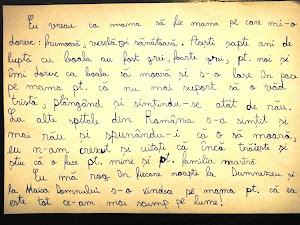 Eu vreau ca mama să fie mama pe care mi-o
doresc: frumoasă, veselă și sănătoasă. Acești șapte ani de
luptă cu boala au fost grei, foarte grei, pt. noi și
îmi doresc ca boala să moară și s-o lase în pace
pe mama pt. că nu mai suport să o văd
tristă, plângând și simțindu-se atât de rău.
La alte spitale din România s-a simțit și
mai rău și spunându-i că o să moară,
eu n-am crezut și uitați că încă trăiește și
știu că o face pt. mine și pt. familia noastră
Eu mă rog în fiecare noapte la Dumnezeu și
la Maica Domnului s-o vindece pe mama pt. că ea
este tot ce-am mai scump pe lume!